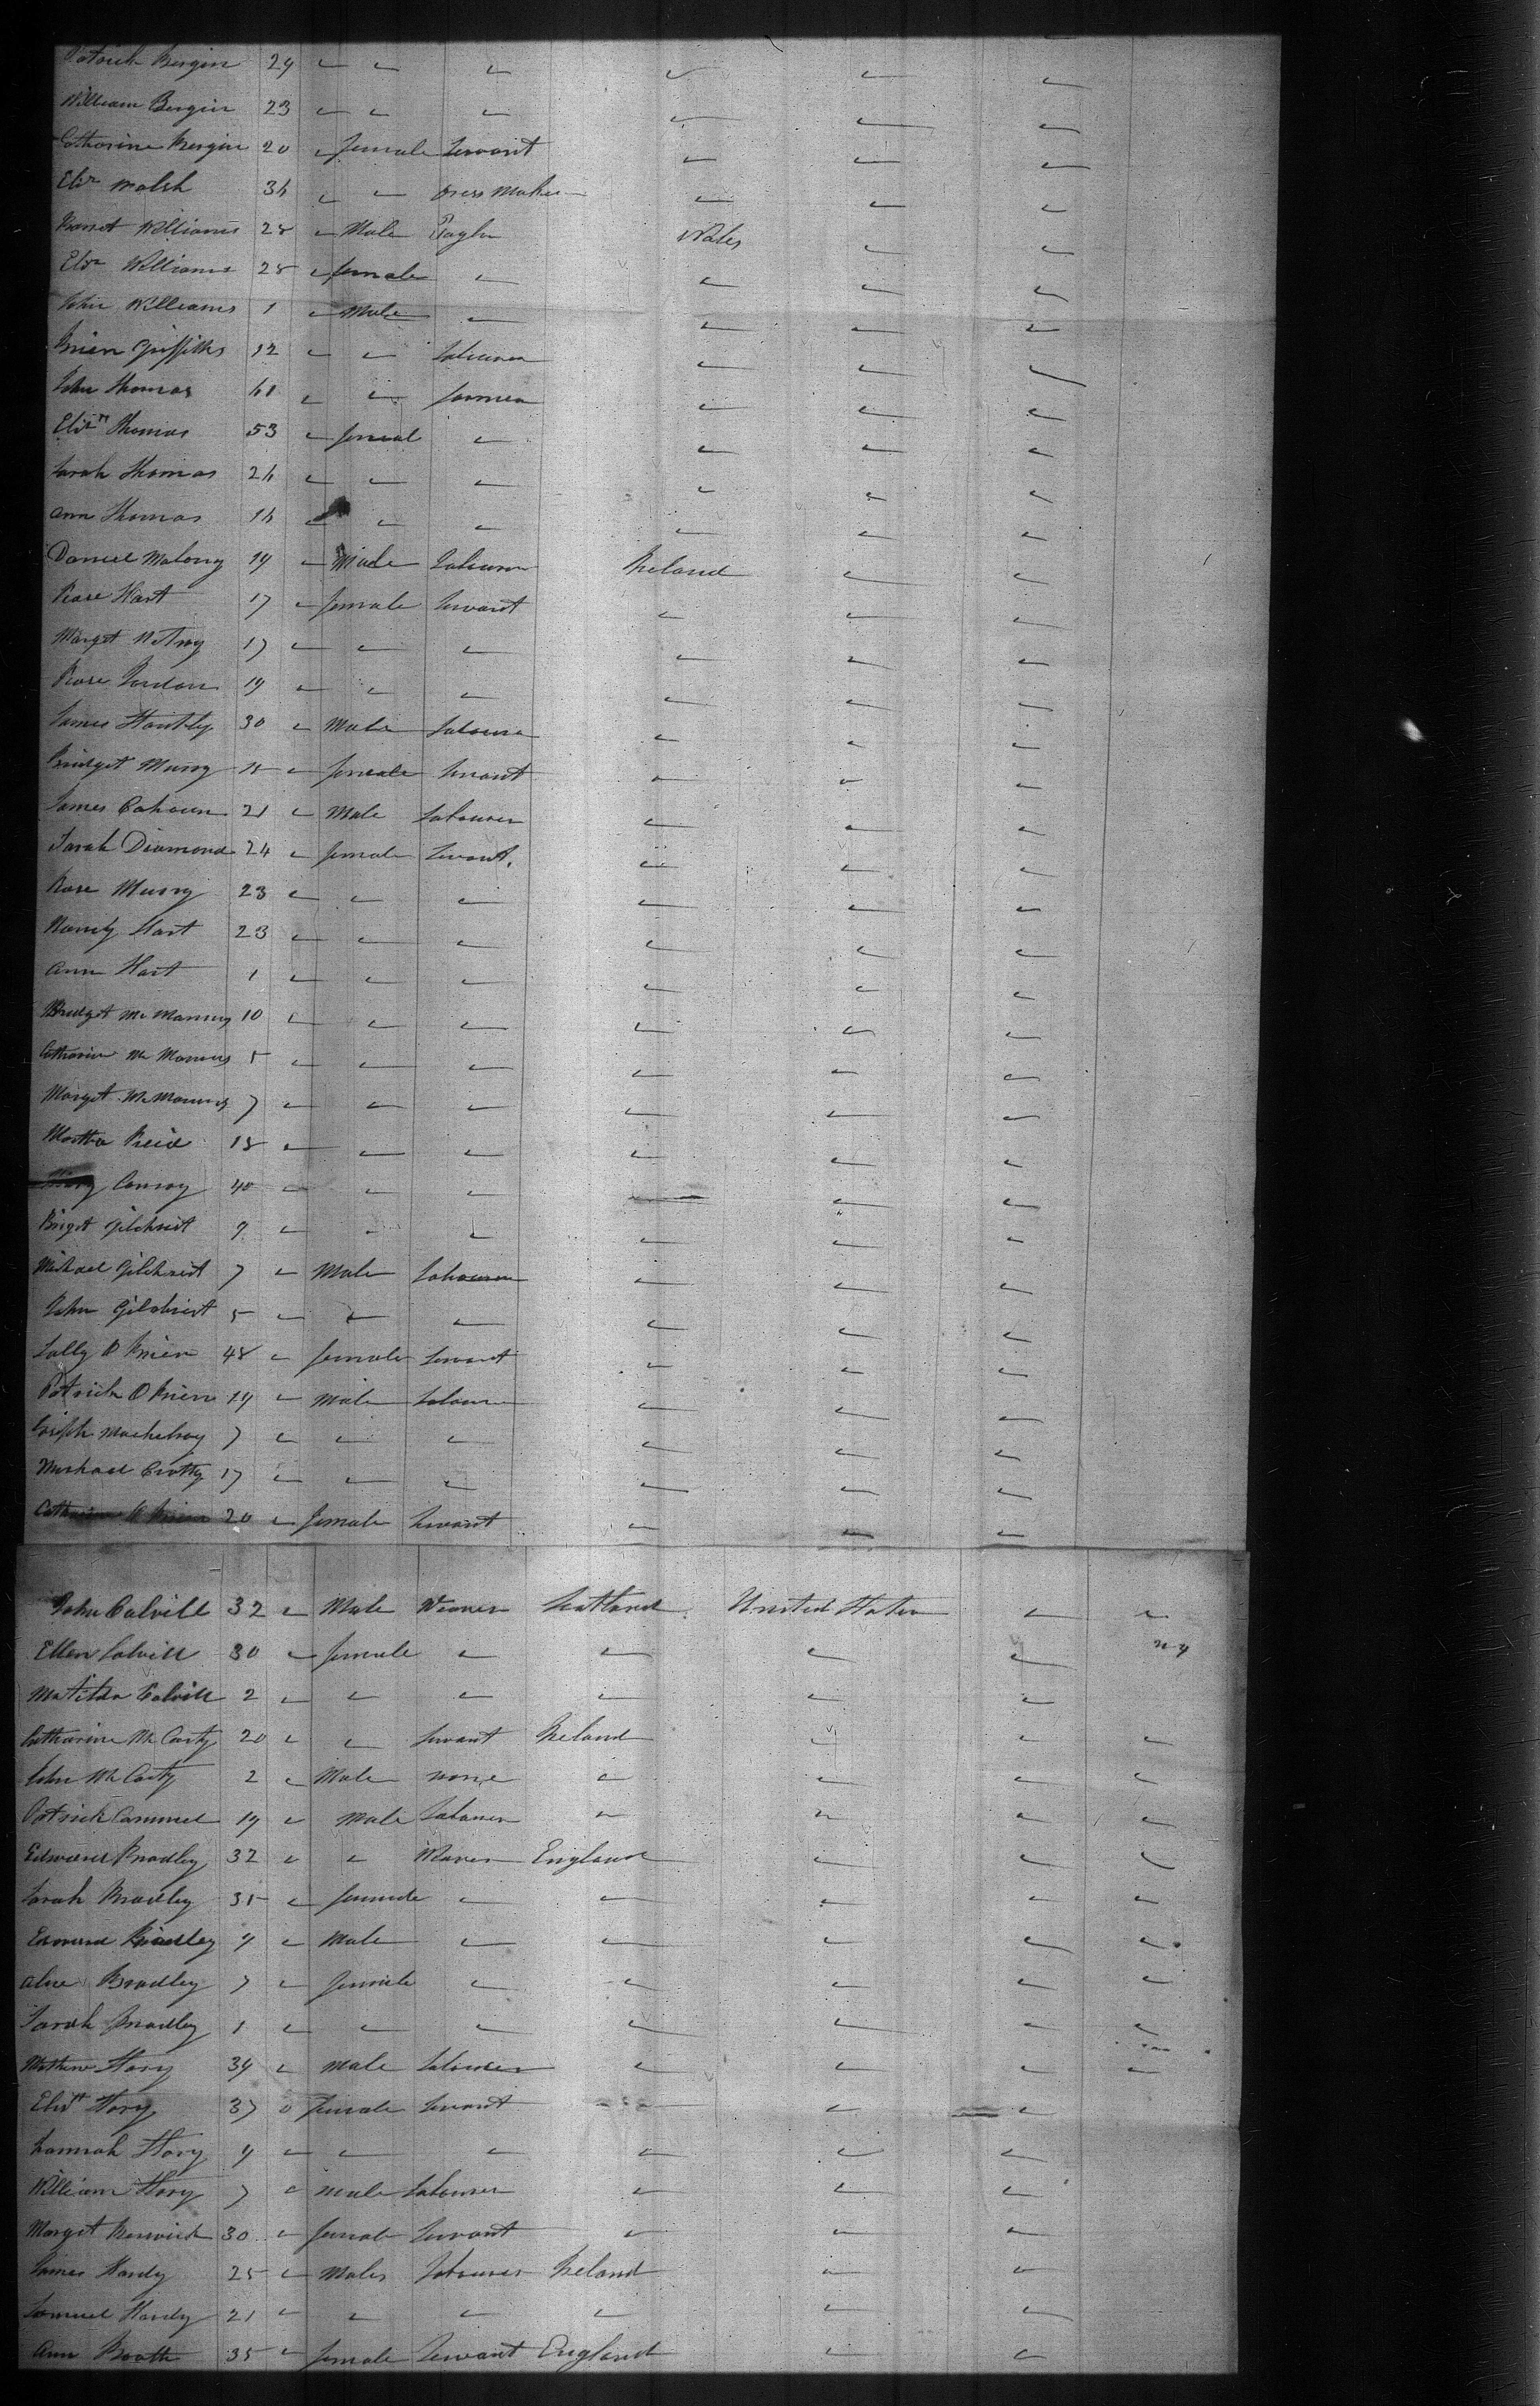 Patrick Bergin 24 " " " " " "
William Bergin 23 " " " " " "
Catharine Bergin 20 " female Servant " " "
Elizr Walsh 36 " " Dress Maker " " "
Williams 28 " Male Taylor Wales " "
Elizr Williams 28 " female " " " "
John Williams 1 " Male " " " "
Brien Griffiths 12 " " Labourer " " "
John Thomas 61 " " farmer " " "
Elizth Thomas 53 " femal " " " "
Sarah Thomas 26 " " " " " "
Ann Thomas 16 " " " " " "
Daniel Malony 19 " Male Labourer Ireland " "
Rose Hart 17 " female Servant " " "
Marget 17 " " " " " "
Rose 19 " " " " " "
James 30 " Male Labourer " " "
Bridget Murry 18 " female Servant " " "
James Cahoun 21 " Male Labourer " " "
Sarah Diamond 24 " female Servant " " "
Rose Murry 23 " " " " " "
Nancy Hart 23 " " " " " "
Ann Hart 1 " " " " " "
Bridget McMannus 10 " " " " " "
Catharine McMannus 5 " " " " " "
Marget McMannus 7 " " " " " "
Martha Reid 18 " " " " " "
Mary Conroy 40 " " " " " "
Briget Gilchrist 9 " " " " " "
Michael Gilchrist 7 " Male Labourer " " "
John Gilchrist 5 " " " " " "
Sally O Brien 48 " female Servant " " "
Patrick O Brien 19 " male Labourer " " "
Joseph 7 " " " " " "
Michael Crotty 17 " " " " " "
Catharine O Brien 20 " female Servant " " "
John Colvill 32 " Male Weaver Scotland United States " "
Ellen Colvill 30 " female " " " " ny
Matilda Colvill 2 " " " " " "
Catharine McCarty 20 " " Servant Ireland " " "
John McCarty 2 " Male none " " " "
Patrick Cammel 19 " Male Labourer " " " "
Edward Bradley 32 " " Weaver England " " "
Sarah Bradley 35 " female " " " " "
Edmund Bradley 9 " Male " " " " "
Alice Bradley 7 " female " " " " "
Sarah Bradley 1 " " " " " " "
Mathew Story 39 " male Labourer " " " "
Elizth Story 37 " female Servant " " "
Hannah Story 9 " " " " " "
William Story 7 " male Labourer " " "
Marget 30 " female Servant " " "
James Hardy 25 " Males Labourer Ireland " "
Samuel Hardy 21 " " " " " "
Ann Booth 35 " female Servant England " "